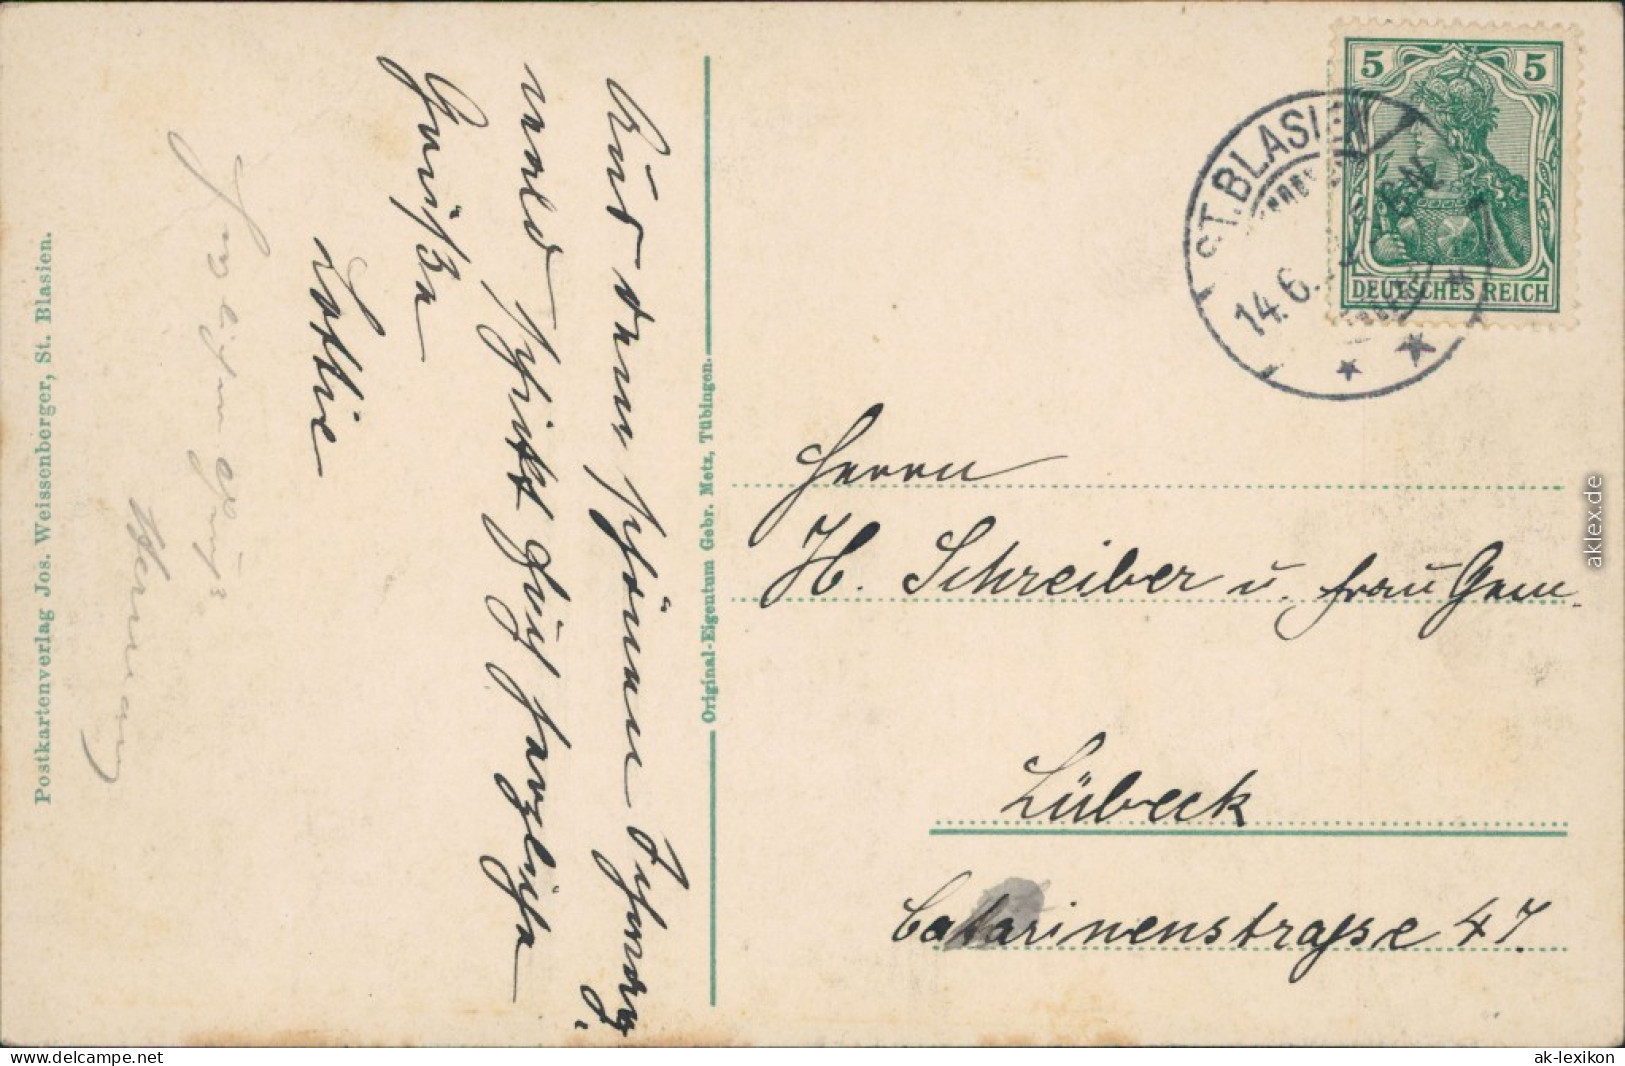 Aus dem schönen Schwarz-
wald schickt Euch herzliche
Grüße
Lotte
Herzlichen Gruß
Hermann
Postkartenverlag Jos. Weissenberger, St. Blasien.
Original-Eigentum Gebr. Metz, Tübingen.
5 5
DEUTSCHES REICH
ST. BLASIEN
14.6.
Herrn
H. Schreiber u. Frau Gem.
Lübeck
Catarinenstrasse 47.
aklex.de
www.delcampe.net
ak-lexikon